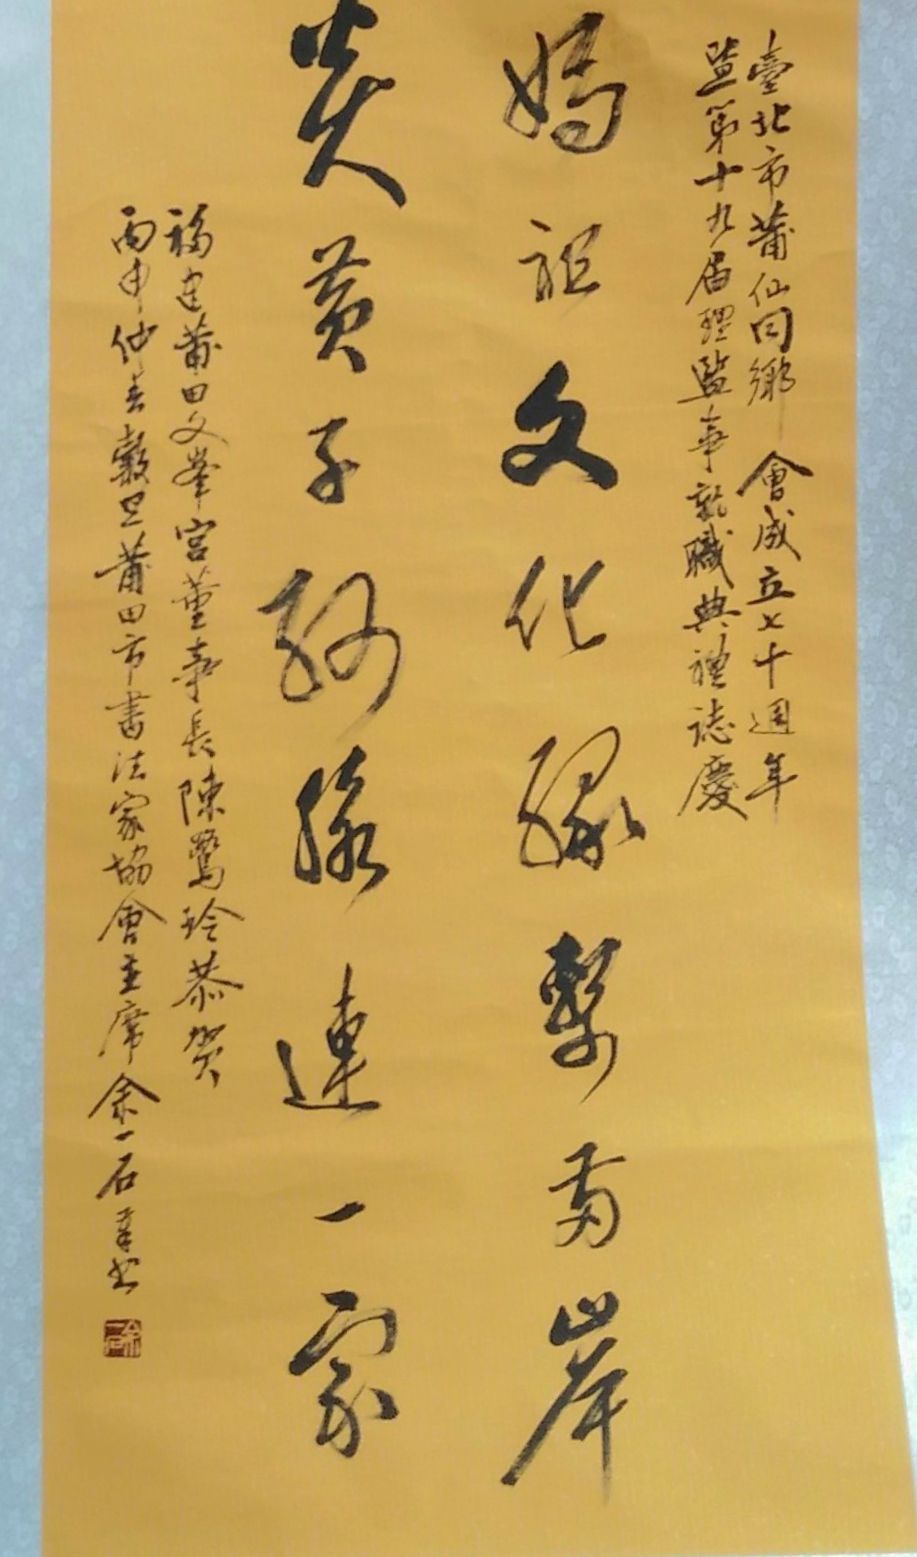 臺北市莆仙同鄉會成立七十週年
暨第十九屆理監事就職典禮誌慶
媽祖文化緣繫兩岸
炎黃子孫脈連一家
福建莆田文峯宮董事長陳鷺玲恭賀
丙申仲春穀旦莆田市書法家協會主席余一石奉書
余一石